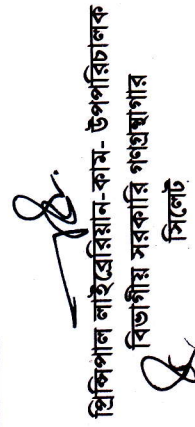 প্রিন্সিপাল লাইব্রেরিয়ান-কাম- উপপরিচালক
বিভাগীয় সরকারি গণগ্রন্থাগার
সিলেট